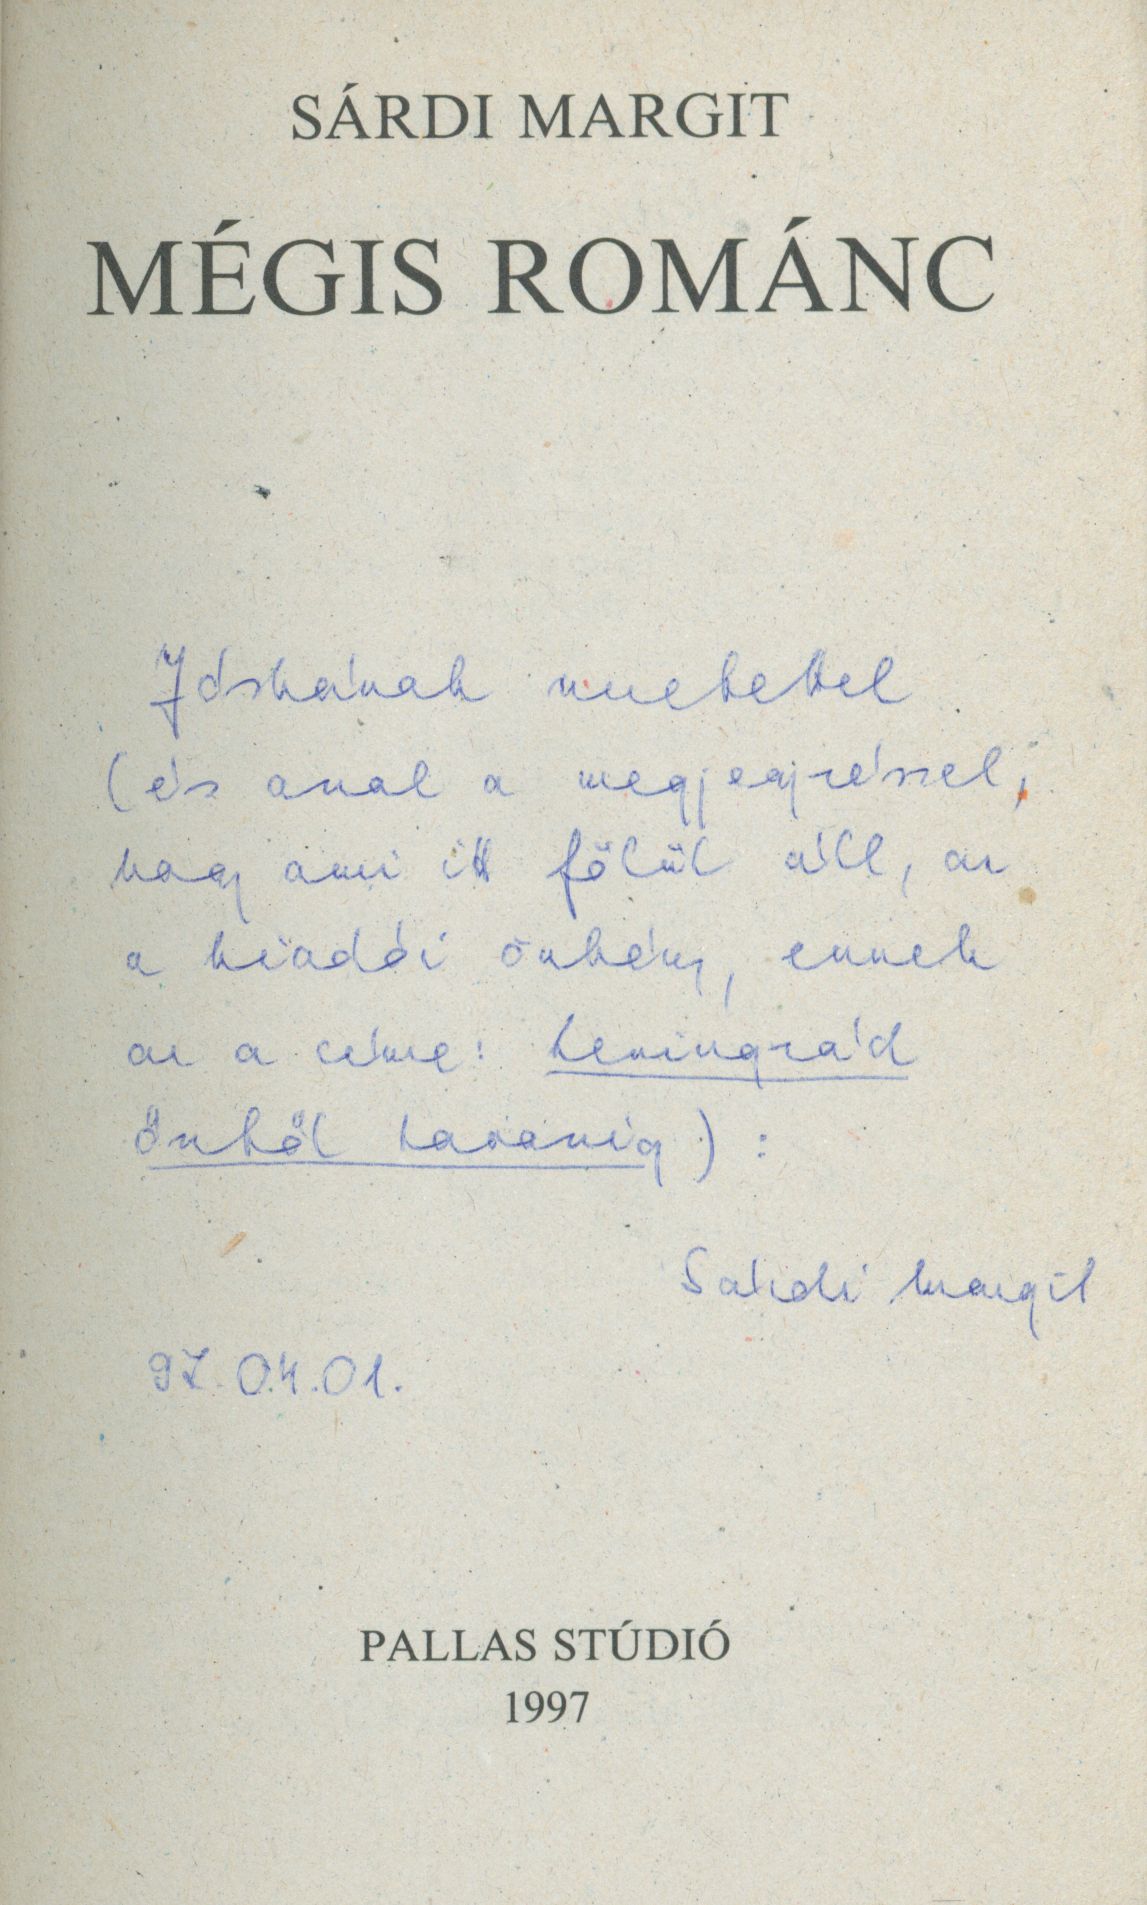 SÁRDI MARGIT
MÉGIS ROMÁNC
Jóskának szeretettel
(és azzal a megjegyzéssel,
hogy ami itt fölül áll, az
a kiadói önkény, ennek
az a címe: Leningrád
ősztől tavaszig):
Sárdi Margit
97.04.01.
PALLAS STÚDIÓ
1997